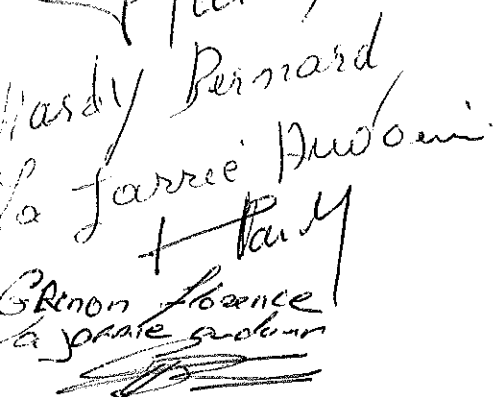 Hardy Bernard
La Jarrie Audouin
Hardy
GRINON Florence
La Jarrie Audouin